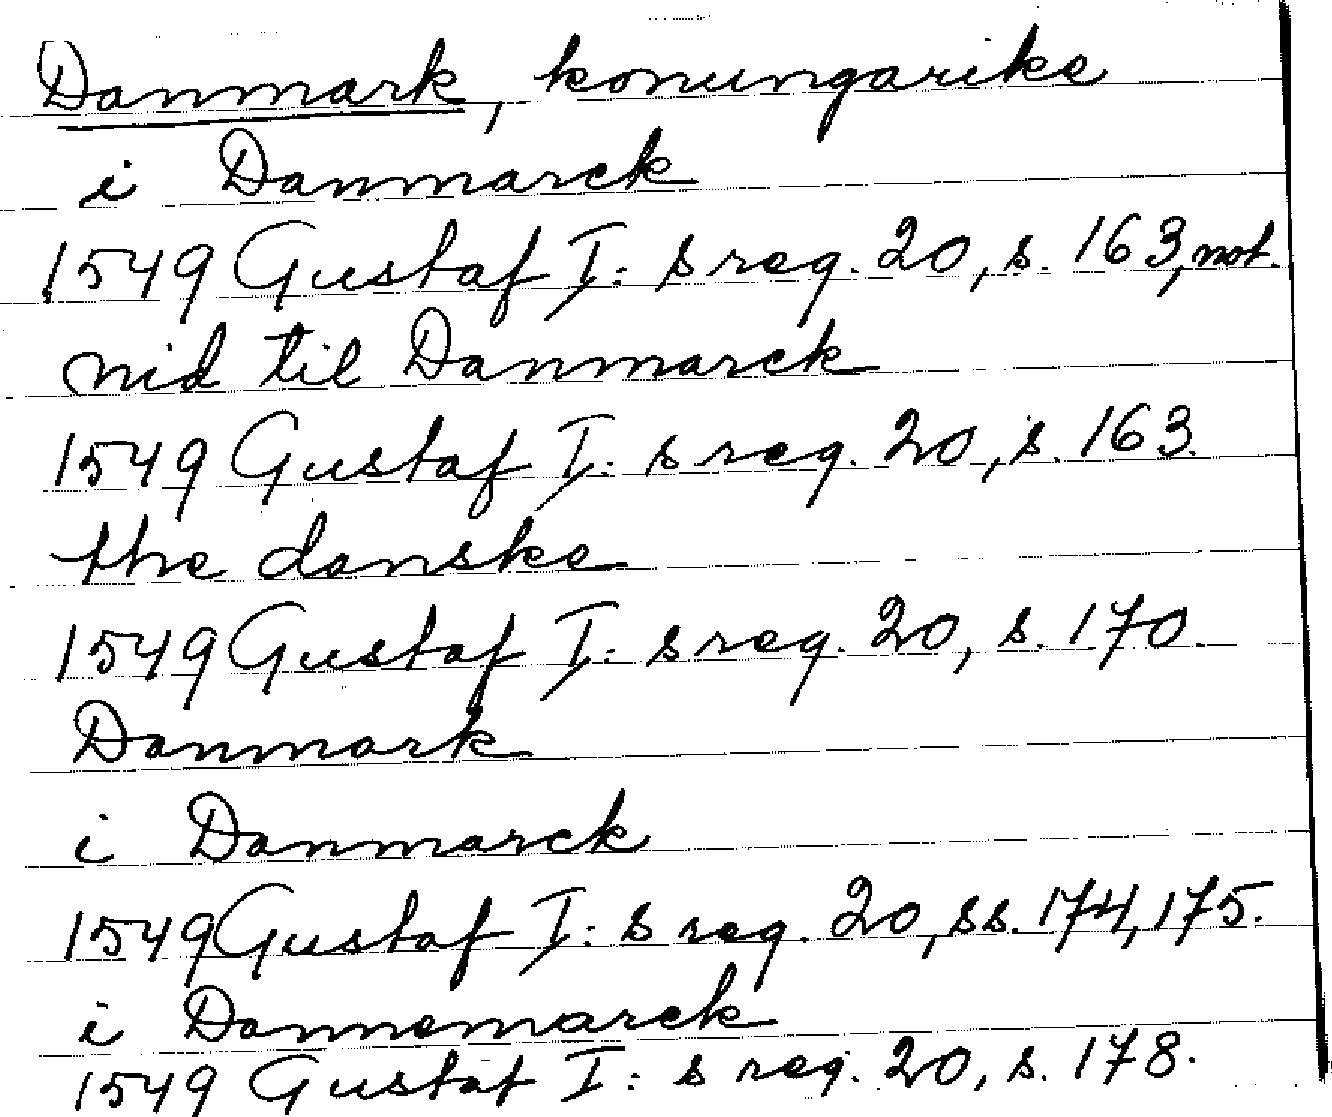 Danmark, konungarike
i Danmarck
1549 Gustaf I:s reg. 20, s. 163, not.
nid til Danmarck
1549 Gustaf I:s reg. 20, s. 163.
the danske
1549 Gustaf I:s reg. 20, s. 170.
Danmark
i Danmarck
1549 Gustaf I:s reg. 20, ss. 174, 175.
i Dannemarck
1549 Gustaf I:s reg. 20, s. 178.